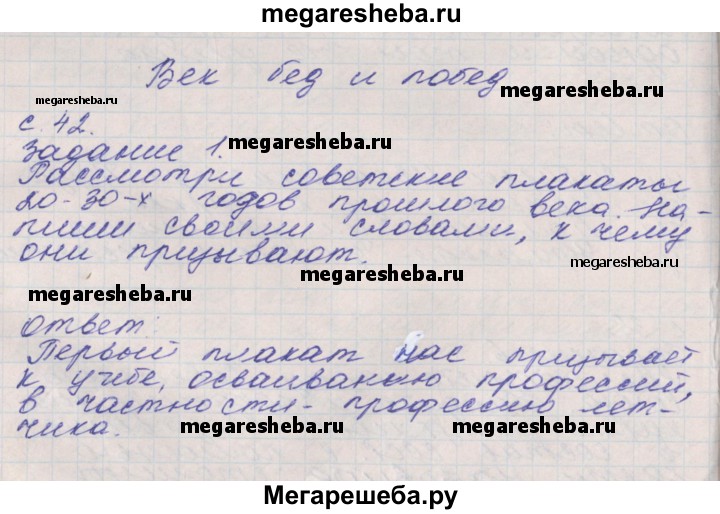 megaresheba.ru
Век бед и побед
megaresheba.ru
megaresheba.ru
с. 42.
Задание 1.
megaresheba.ru
Рассмотри советские плакаты
20-30-х годов прошлого века. На-
пиши своими словами, к чему
они призывают.
megaresheba.ru
megaresheba.ru
megaresheba.ru
Ответ:
Первый плакат нас призывает
к учёбе, осваиванию профессий,
в частности - профессию лет-
чика.
megaresheba.ru
megaresheba.ru
Мегарешеба.ру